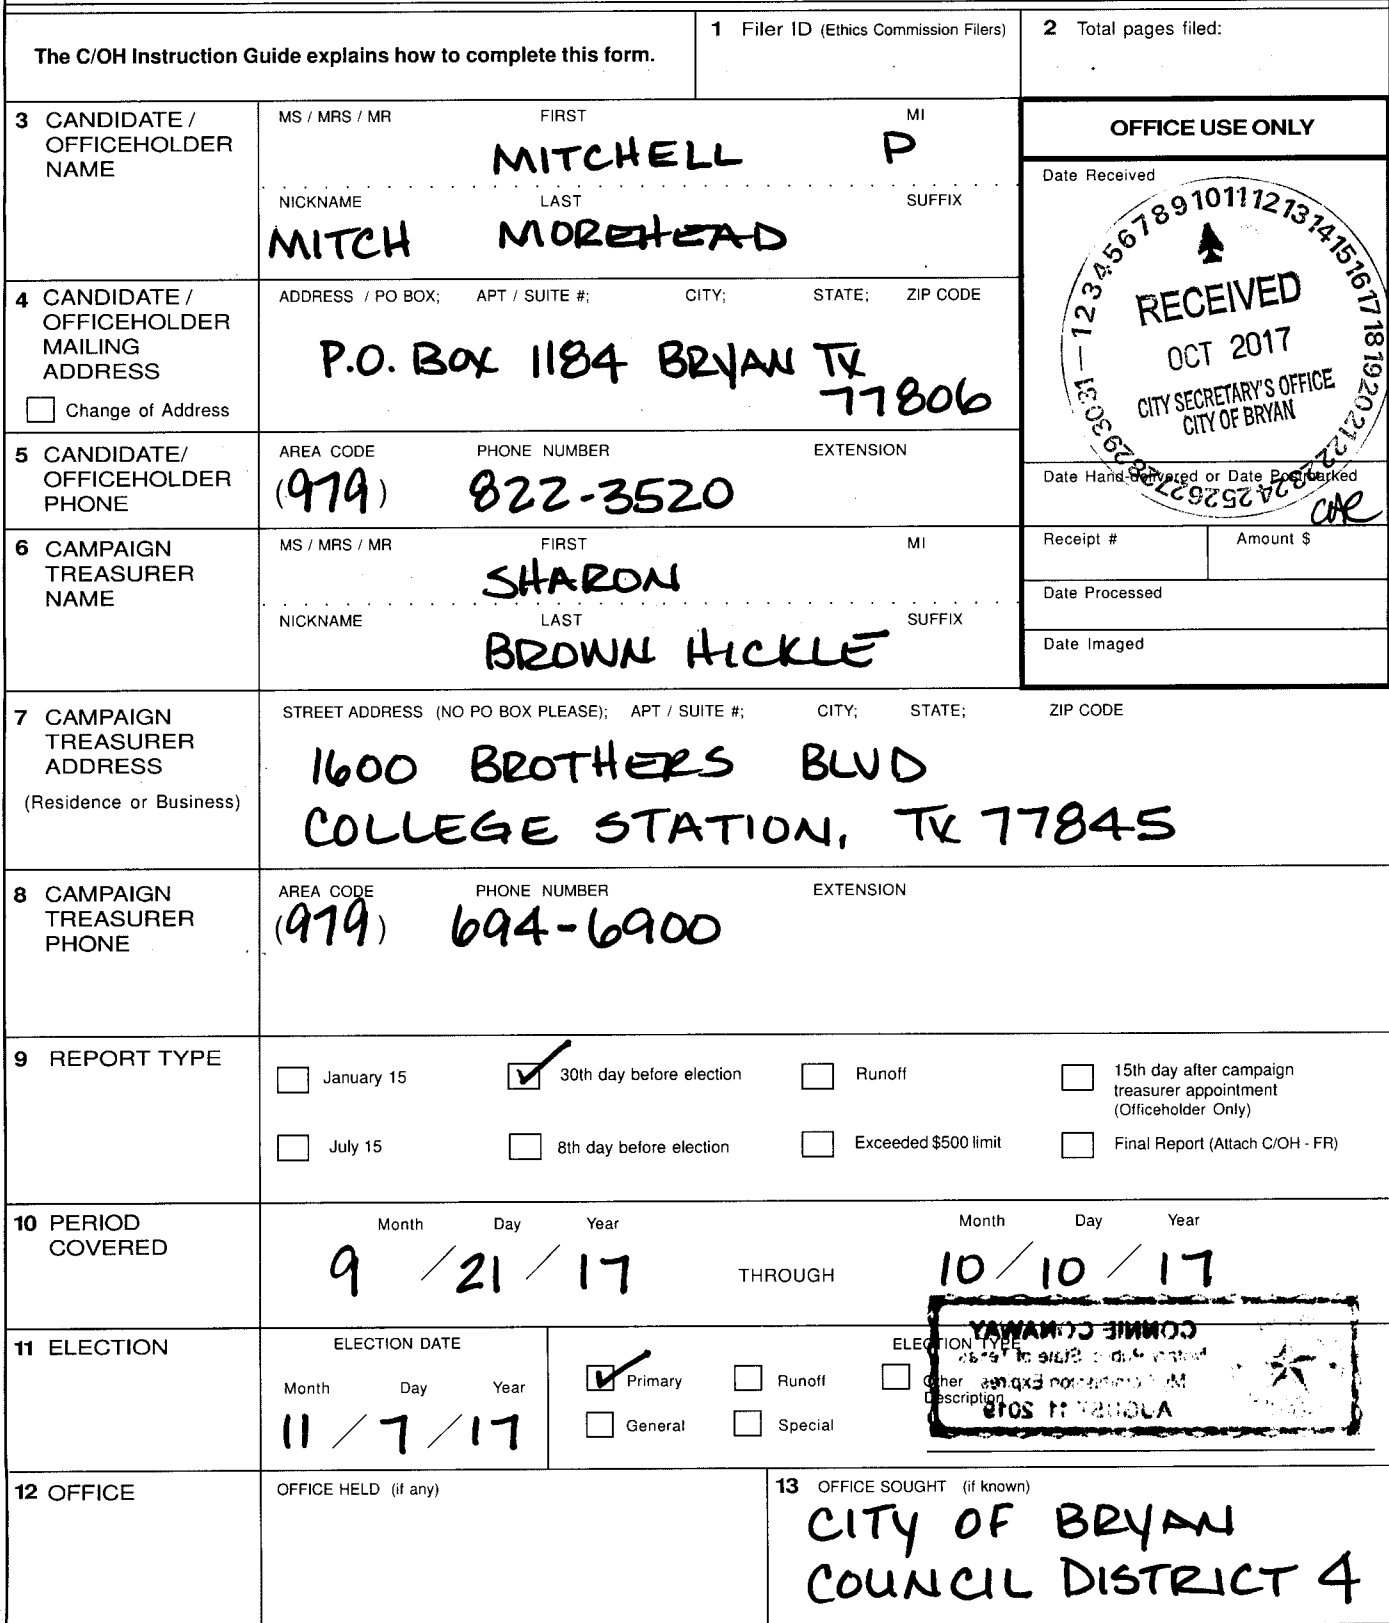 The C/OH Instruction Guide explains how to complete this form.
1 Filer ID (Ethics Commission Filers)
2 Total pages filed:
3 CANDIDATE / OFFICEHOLDER NAME
MS / MRS / MR FIRST MI
MITCHELL P
NICKNAME LAST SUFFIX
MITCH MOREHEAD
OFFICE USE ONLY
Date Received
1 2 3 4 5 6 7 8 9 10 11 12 13 14 15 16 17 18 19 20 21 22 23 24 25 26 27 28 29 30 31
RECEIVED
OCT 2017
CITY SECRETARY'S OFFICE
CITY OF BRYAN
4 CANDIDATE / OFFICEHOLDER MAILING ADDRESS
Change of Address
ADDRESS / PO BOX; APT / SUITE #; CITY; STATE; ZIP CODE
P.O. BOX 1184 BRYAN TX
77806
5 CANDIDATE/ OFFICEHOLDER PHONE
AREA CODE PHONE NUMBER EXTENSION
(979) 822-3520
Date Hand-delivered or Date Postmarked
6 CAMPAIGN TREASURER NAME
MS / MRS / MR FIRST MI
SHARON
NICKNAME LAST SUFFIX
BROWN HICKLE
Receipt # Amount $
Date Processed
Date Imaged
7 CAMPAIGN TREASURER ADDRESS
(Residence or Business)
STREET ADDRESS (NO PO BOX PLEASE); APT / SUITE #; CITY; STATE; ZIP CODE
1600 BROTHERS BLVD
COLLEGE STATION, TX 77845
8 CAMPAIGN TREASURER PHONE
AREA CODE PHONE NUMBER EXTENSION
(979) 694-6900
9 REPORT TYPE
January 15
30th day before election
Runoff
15th day after campaign treasurer appointment (Officeholder Only)
July 15
8th day before election
Exceeded $500 limit
Final Report (Attach C/OH - FR)
10 PERIOD COVERED
Month Day Year
9 / 21 / 17
THROUGH
Month Day Year
10 / 10 / 17
11 ELECTION
ELECTION DATE
Month Day Year
11 / 7 / 17
ELECTION TYPE
Primary
Runoff
Other Description
General
Special
CONNIE CONAWAY
Notary Public State of Texas
My Commission Expires
AUGUST 11 2019
12 OFFICE
OFFICE HELD (if any)
13 OFFICE SOUGHT (if known)
CITY OF BRYAN
COUNCIL DISTRICT 4